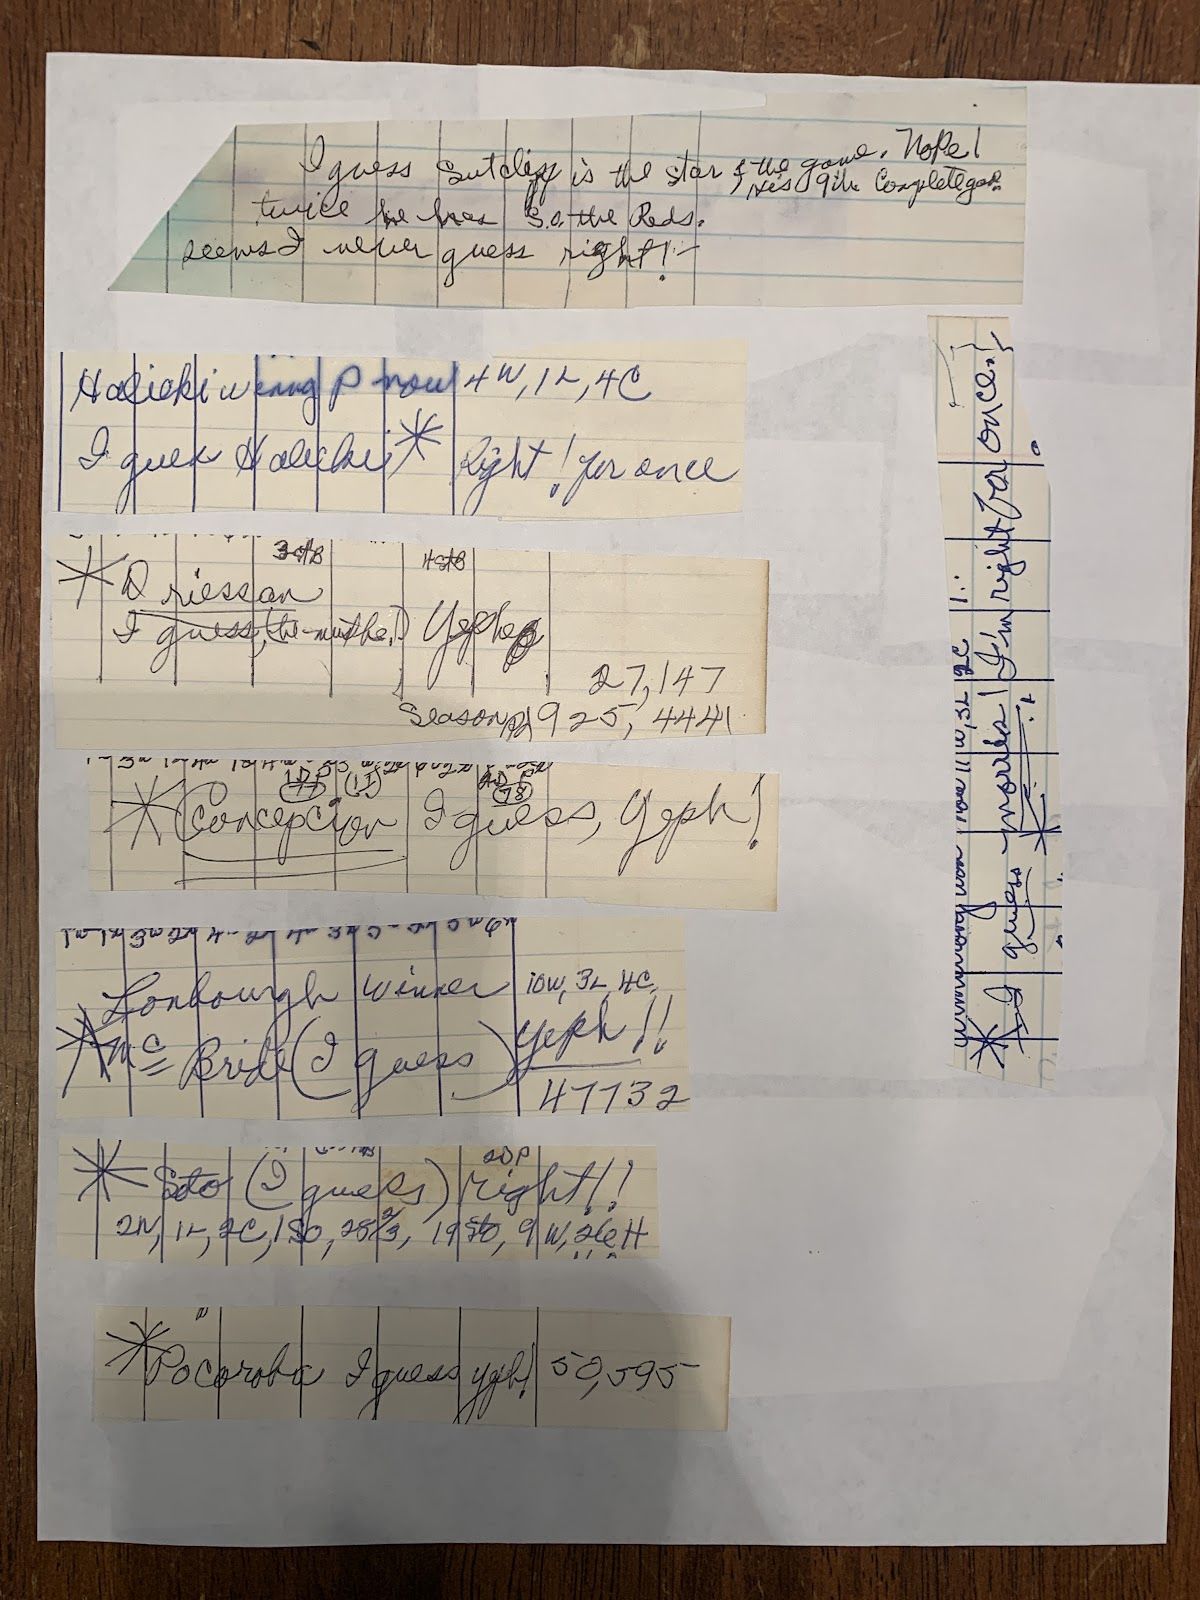 I guess Sutcliff is the star of the game. Nope!
His 9th Complete game
twice he has S.O. the Reds.
seems I never guess right!-
Halicki winning P now 4W, 1L, 4C
I guess Halicki * Right! for once
3rdB 4thB
* Driessan
I guess, Yeph
27,147
Season 1925,444
* Concepcion I guess, Yeph!
Lonbourgh Winner 10W, 3L, 4C,
* Mc Bride (I guess) Yeph!!
47732
2DP
* Soto (I guess) right!!
2W, 1L, 2C, 1SO, 28 2/3, 19 StO, 9W, 26H
* Pocoroba I guess yeph! 50,595
won now 11W, 3L 2C
* I guess Morris! I'm right for once!